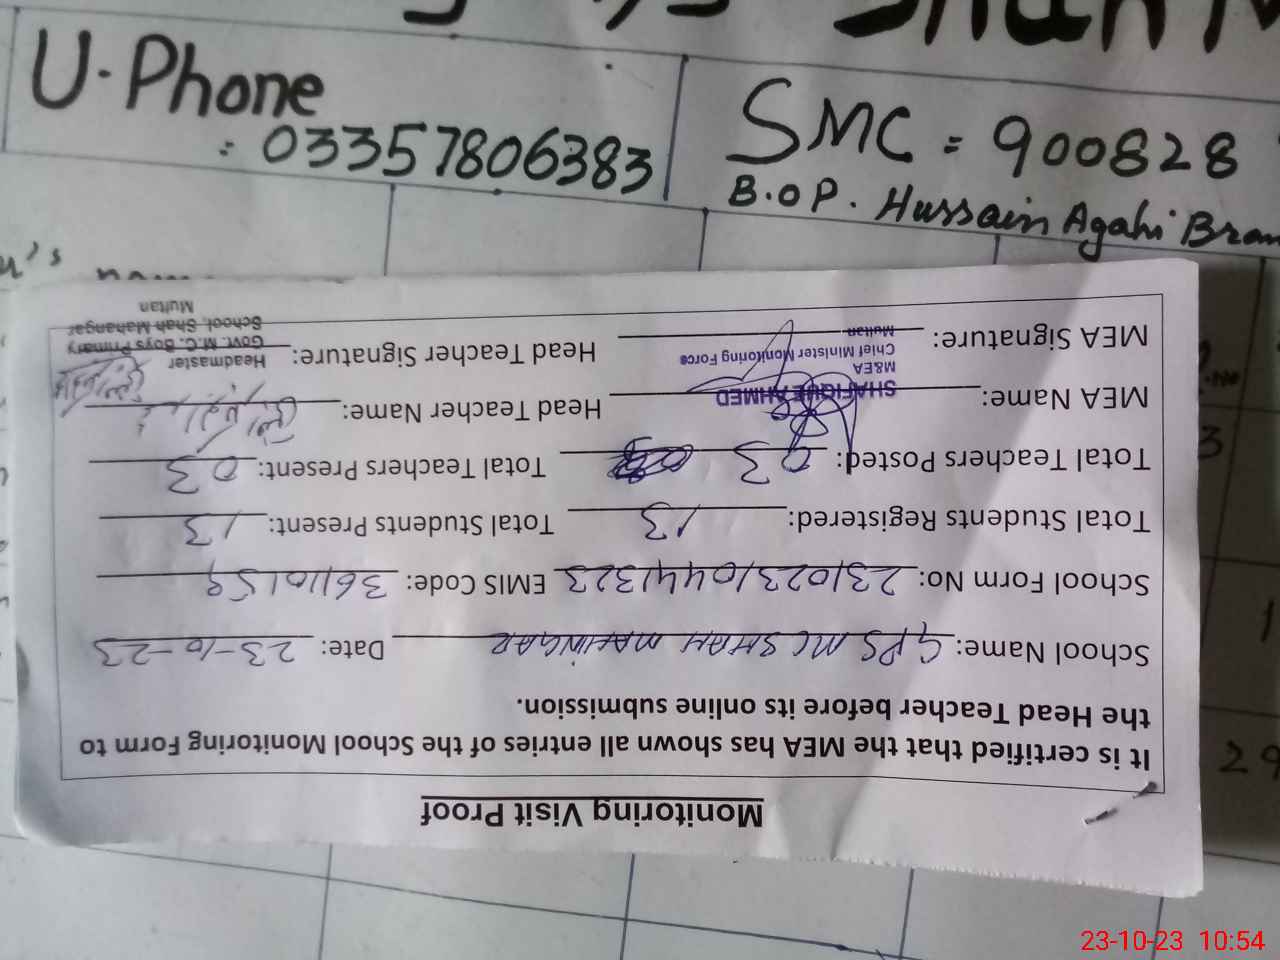 U. Phone
= 03357806383
SMC = 900828
B.O P. Hussain Agahi Bran
Monitoring Visit Proof
It is certified that the MEA has shown all entries of the School Monitoring Form to
the Head Teacher before its online submission.
School Name: GPS MC SHAH MAHINGAR Date: 23-10-23
School Form No: 23102310441323 EMIS Code: 36110159
Total Students Registered: 13 Total Students Present: 13
Total Teachers Posted: 03 Total Teachers Present: 03
MEA Name: Head Teacher Name:
SHAFIQUE AHMED
M&EA
Chief Minister Monitoring Force
Multan
MEA Signature: Head Teacher Signature:
Headmaster
Govt. M.C. Boys Primary
School, Shah Mahangar
Multan
23-10-23 10:54